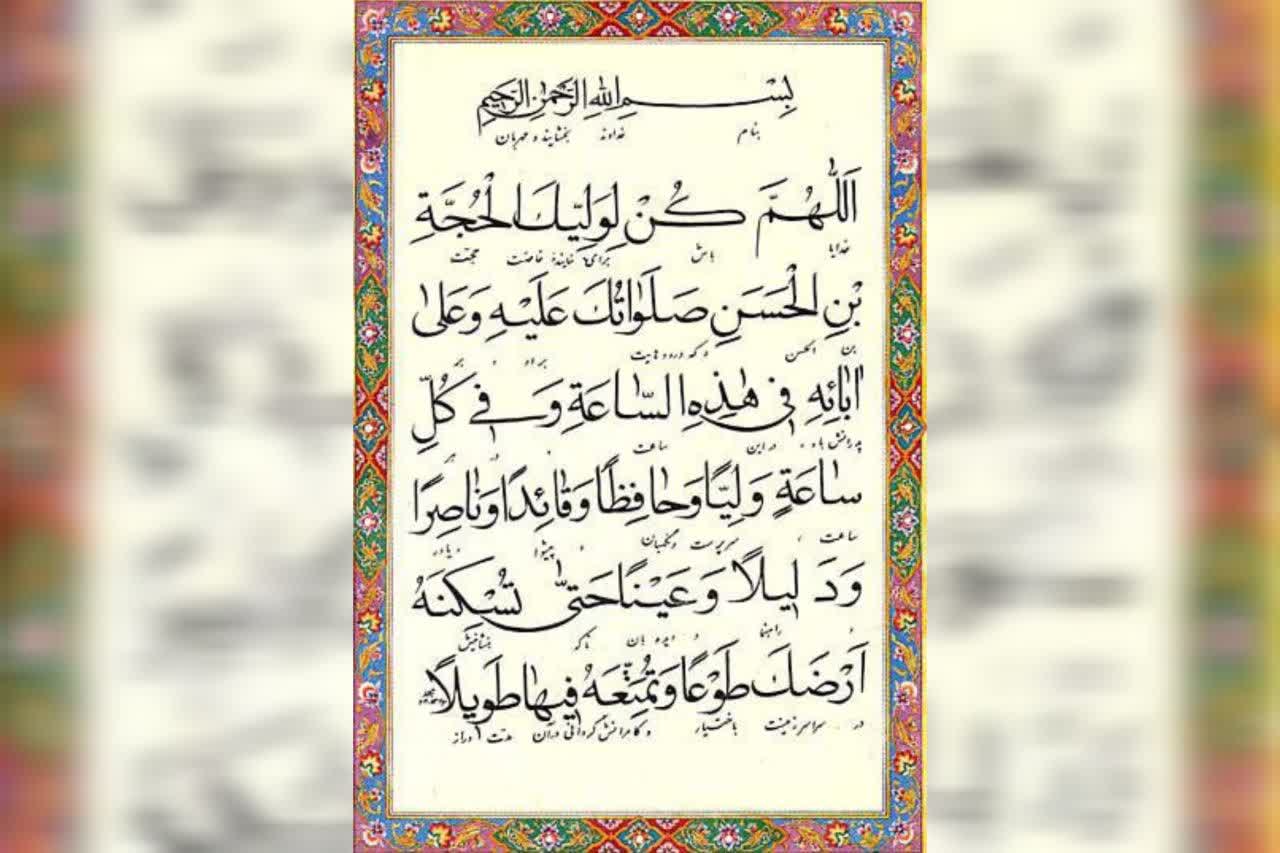 بِسْمِ اللهِ الرَّحْمٰنِ الرَّحِيمِ
بنام خداوند بخشاینده و مهربان
اَللّٰهُمَّ كُنْ لِوَلِيِّكَ الْحُجَّةِ
خدایا باش برای نمایندهٔ خاصت حجت
بْنِ الْحَسَنِ صَلَوٰاتُكَ عَلَيْهِ وَعَلىٰ
بن الحسن که درودهایت بر او و بر
اٰبٰائِهِ في هٰذِهِ السّٰاعَةِ وَفي كُلِّ
پدرانش باد در این ساعت و در هر
سٰاعَةٍ وَلِيًّا وَحٰافِظًا وَقٰائِدًا وَنٰاصِرًا
ساعت ، سرپرست و نگهبان و پیشوا و یاور
وَدَليلًا وَعَيْنًا حَتّىٰ تُسْكِنَهُ
و راهنما و دیده بان تا که بنشانیش
اَرْضَكَ طَوْعًا وَتُمَتِّعَهُ فيهٰا طَويلًا
در سراسر زمینت باختیار و کامرانش گردانی در آن مدت دراز